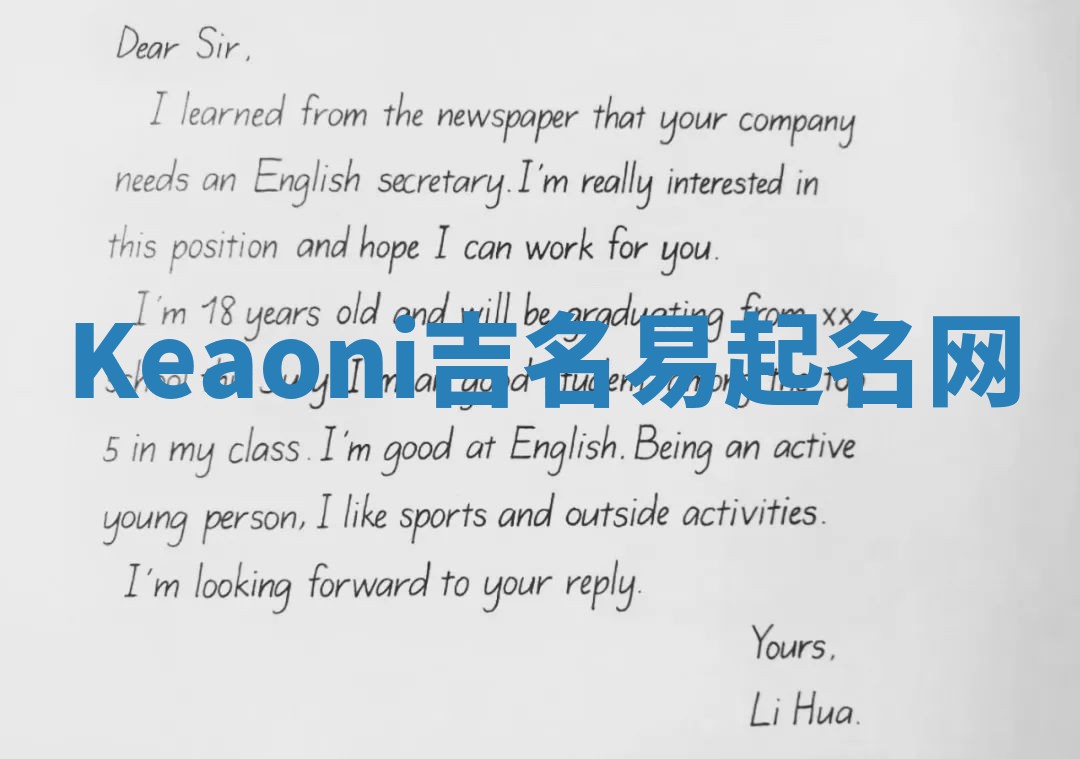 Dear Sir,
I learned from the newspaper that your company
needs an English secretary. I'm really interested in
this position and hope I can work for you.
I'm 18 years old and will be graduating from xx
Keaoni吉名易起名网
school this July. I'm a good student among the top
5 in my class. I'm good at English. Being an active
young person, I like sports and outside activities.
I'm looking forward to your reply.
Yours,
Li Hua.